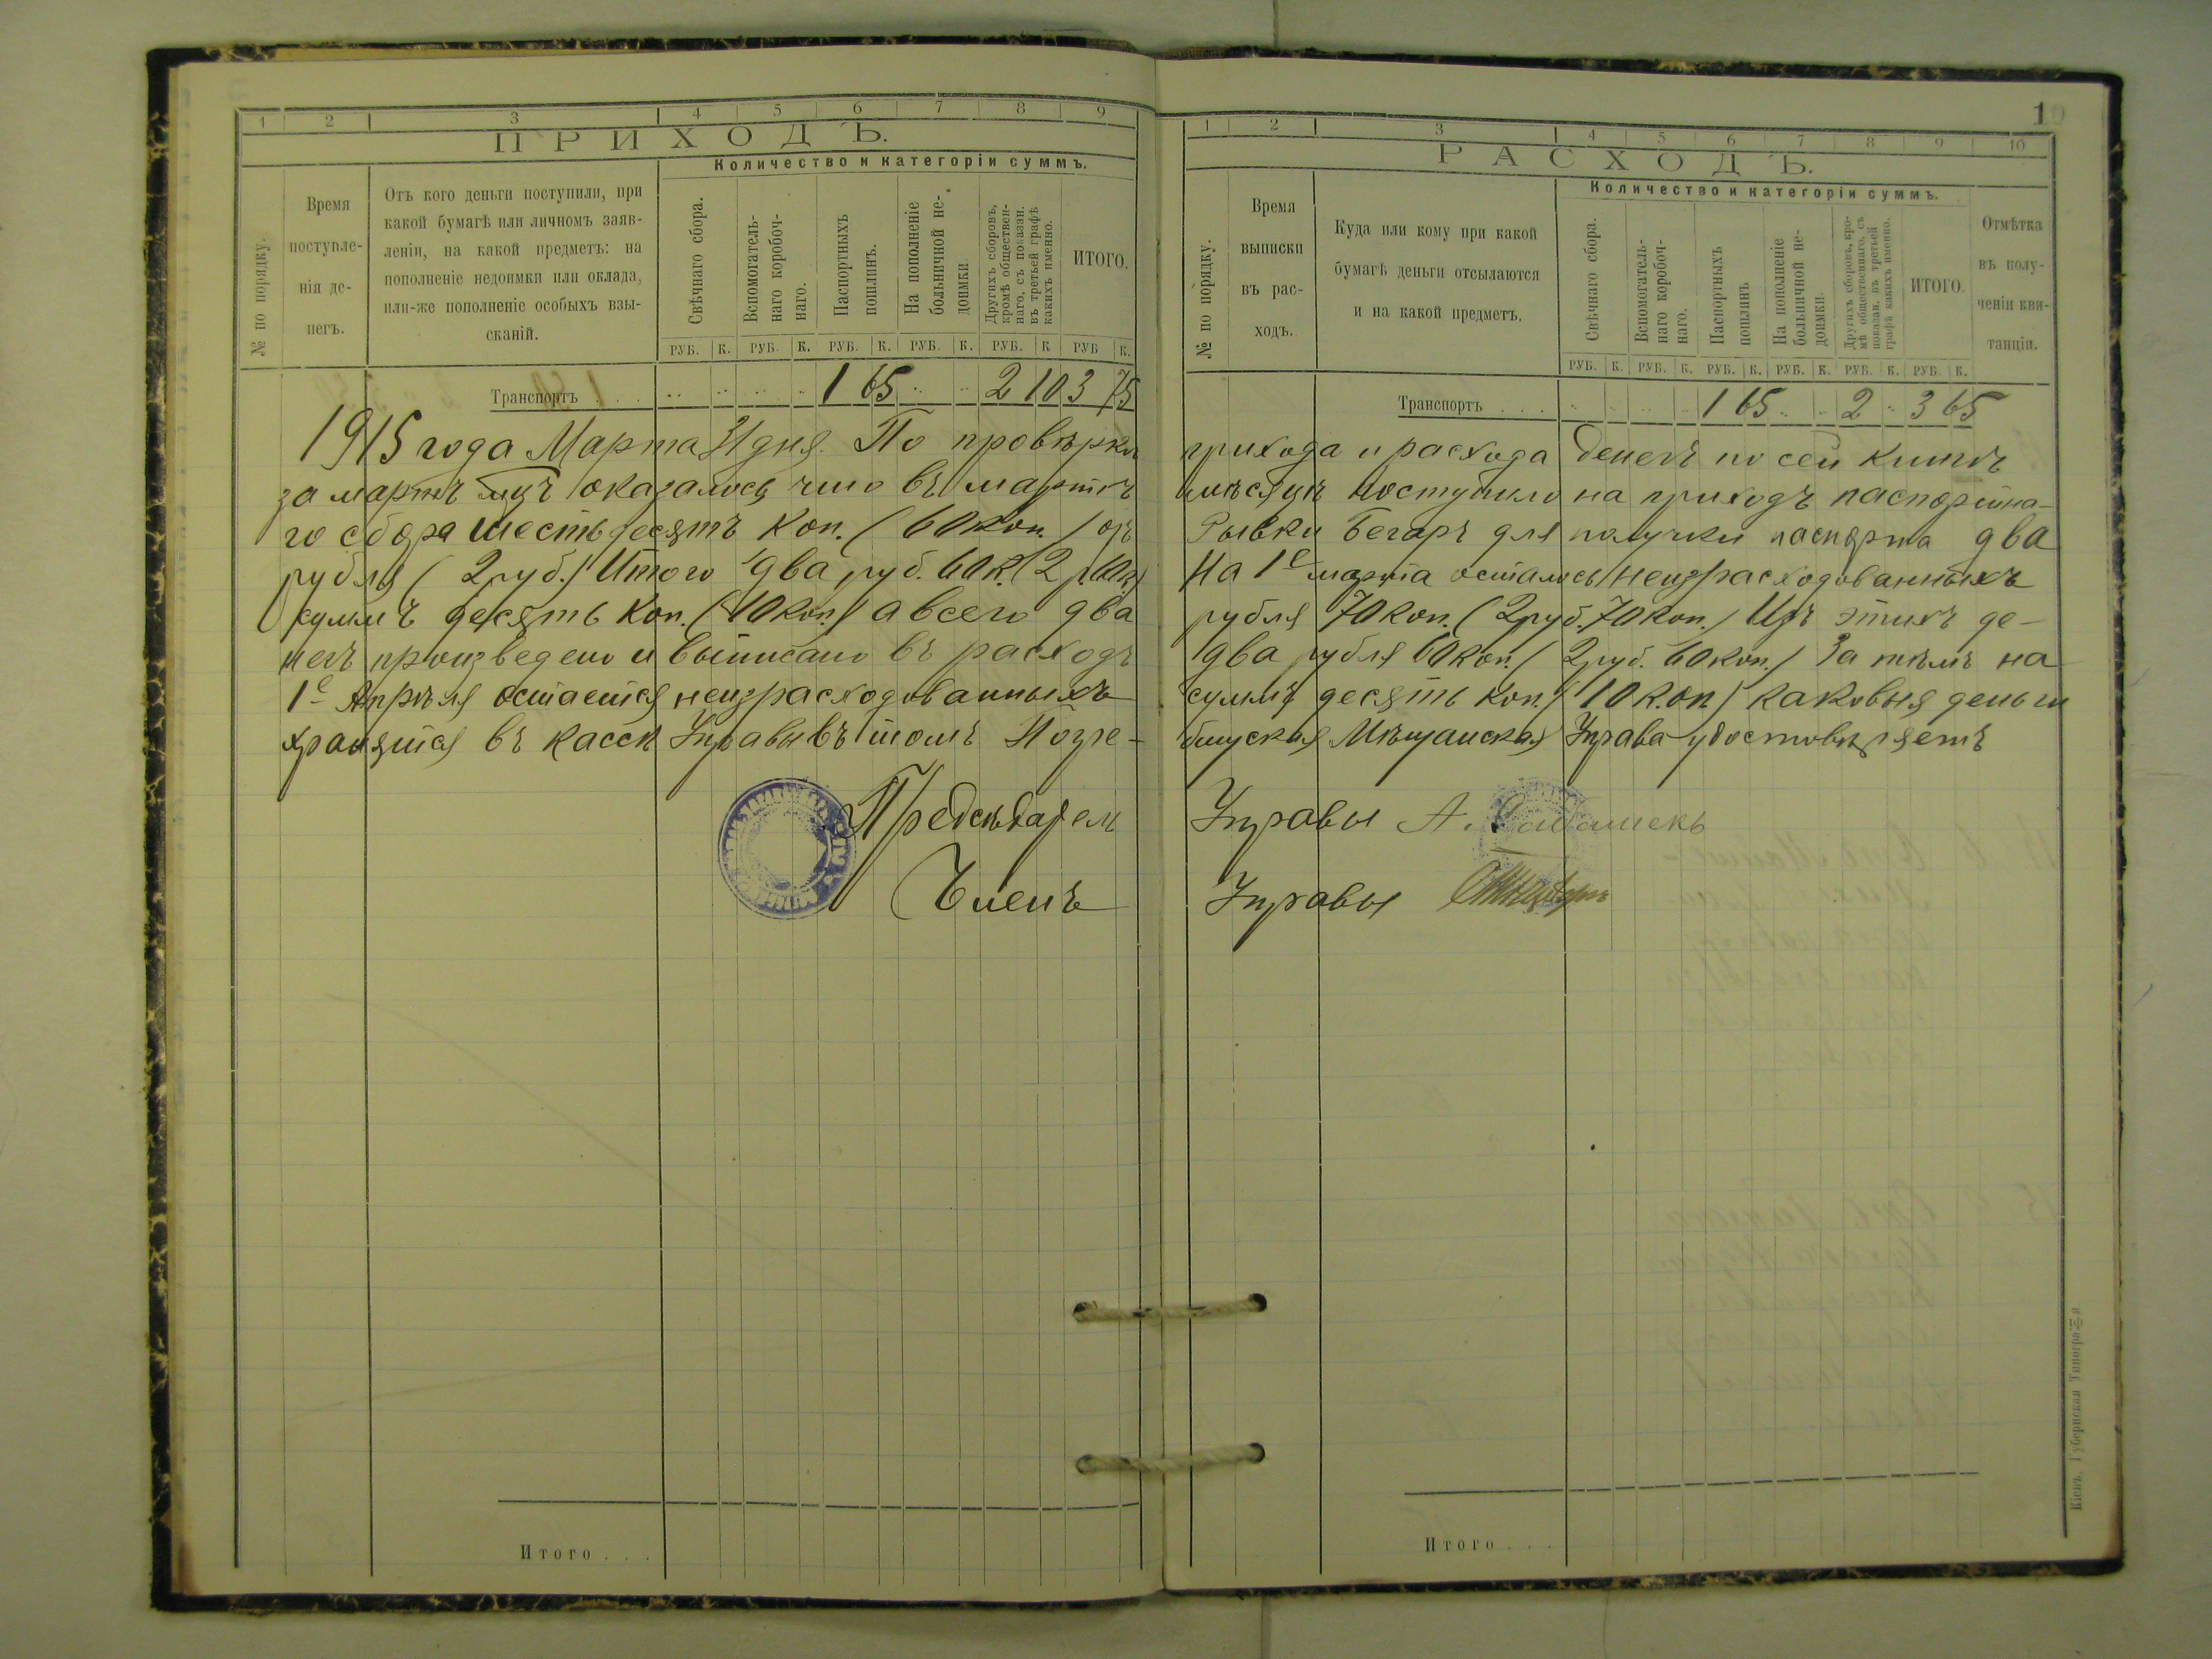 1 2 3 4 5 6 7 8 9
ПРИХОДЪ.
Количество и категоріи суммъ.
№ по порядку.
Время поступле-
нія де-
негъ.
Отъ кого деньги поступили, при
какой бумагѣ или личномъ заяв-
леніи, на какой предметъ: на
пополненіе недоимки или оклада,
или-же пополненіе особыхъ взы-
сканій.
Свѣчнаго сбора.
Вспомогатель-
наго коробоч-
наго.
Паспортныхъ
пошлинъ.
На пополненіе
больничной не-
доимки.
Другихъ сборовъ,
кромѣ обществен-
наго, съ показан.
въ третьей графѣ
какихъ именно.
ИТОГО.
РУБ. К. РУБ. К. РУБ. К. РУБ. К. РУБ. К РУБ К.
Транспортъ . . . 1 65 2 10 3 75
1915 года Марта 31 дня. По провѣркѣ прихода и расхода денегъ по сей книгѣ
за мартъ мцъ оказалось что въ мартѣ мѣсяцѣ поступило на приходъ паспортна-
го сбора шестьдесятъ коп. (60 коп.) отъ Рывки Бегаръ для получки паспорта два
рубля (2 руб.) Итого два руб. 60 к. (2 р. 60 к.) На 1е марта осталось неизрасходованныхъ
суммъ десять коп. (10 коп.) а всего два рубля 70 коп. (2 руб. 70 коп.) Изъ этихъ де-
негъ произведено и выписано въ расходъ два рубля 60 коп. (2 руб. 60 коп.) За тѣмъ на
1е Апрѣля остается неизрасходованныхъ суммъ десять коп. (10 коп.) каковыя деньги
хранятся въ кассѣ Управы въ томъ Погре- бищская Мѣщанская Управа удостовѣряетъ
Предсѣдатель Управы А.
Членъ Управы
Итого . . .
10
1 2 3 4 5 6 7 8 9 10
РАСХОДЪ.
Количество и категоріи суммъ.
№ по порядку.
Время
выписки
въ рас-
ходъ.
Куда или кому при какой
бумагѣ деньги отсылаются
и на какой предметъ.
Свѣчнаго сбора.
Вспомогатель-
наго коробоч-
наго.
Паспортныхъ
пошлинъ
На пополненіе
больничной не-
доимки.
Другихъ сборовъ, кро-
мѣ общественнаго, съ
показан. въ третьей
графѣ какихъ именно.
ИТОГО.
Отмѣтка
въ полу-
ченіи кви-
танціи.
РУБ. К. РУБ. К. РУБ. К. РУБ. К. РУБ. К. РУБ. К.
Транспортъ . . . 1 65 2 3 65
Итого . . .
Кіевъ, Губернская Типографія